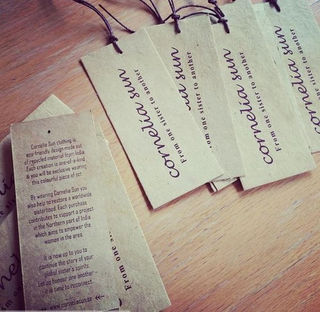 Cornelia Sun clothing is
eco-friendly design made out
of recycled material from India.
Each creation is one-of-a-kind
& you will be exclusive wearing
this colourful piece of art.
By wearing Cornelia Sun you
also help to restore a worldwide
sisterhood. Each purchase
contributes to support a project
in the Northern part of India
which aims to empower the
women in the area.
It is now up to you to
continue the story of your
global sister's spirits.
Let us honour one another
it is time to reconnect.
www.corneliasun.se
From one
cornelia sun
From one sister to another
cornelia sun
From one sister to another
cornelia sun
From one sister to another
cornelia sun
From one sister to another